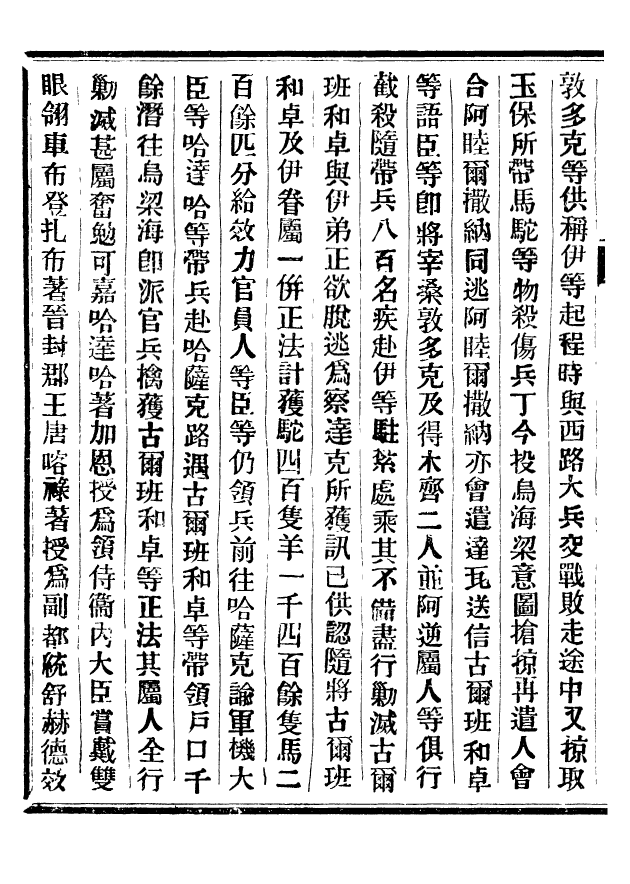 敦多克等供稱伊等起程時與西路大兵交戰敗走途中又掠取
玉保所帶馬駝等物殺傷兵丁今投烏海梁意圖搶掠再遣人會
台阿睦爾撒納同逃阿睦爾撒納亦曾遣達瓦送信古爾班和卓
等語臣等卽將宰桑敦多克及得木齊二人並阿逆屬人等俱行
截殺隨帶兵八百名疾赴伊等駐紮處乘其不備盡行勦滅古爾
班和卓與伊弟正欲脫逃爲察達克所獲訊已供認隨將古爾班
和卓及伊眷屬一倂正法計獲駝四百隻羊一千四百餘隻馬二
百餘匹分給效力官員人等臣等仍領兵前往哈薩克諭軍機大
臣等哈達哈等帶兵赴哈薩克路遇古爾班和卓等帶領戶口千
餘潛往烏梁海卽派官兵擒獲古爾班和卓等正法其屬人全行
勦滅甚屬奮勉可嘉哈達哈著加恩授爲領侍衞內大臣賞戴雙
眼翎車布登扎布著晉封郡王唐喀祿著授爲副都統舒赫德效